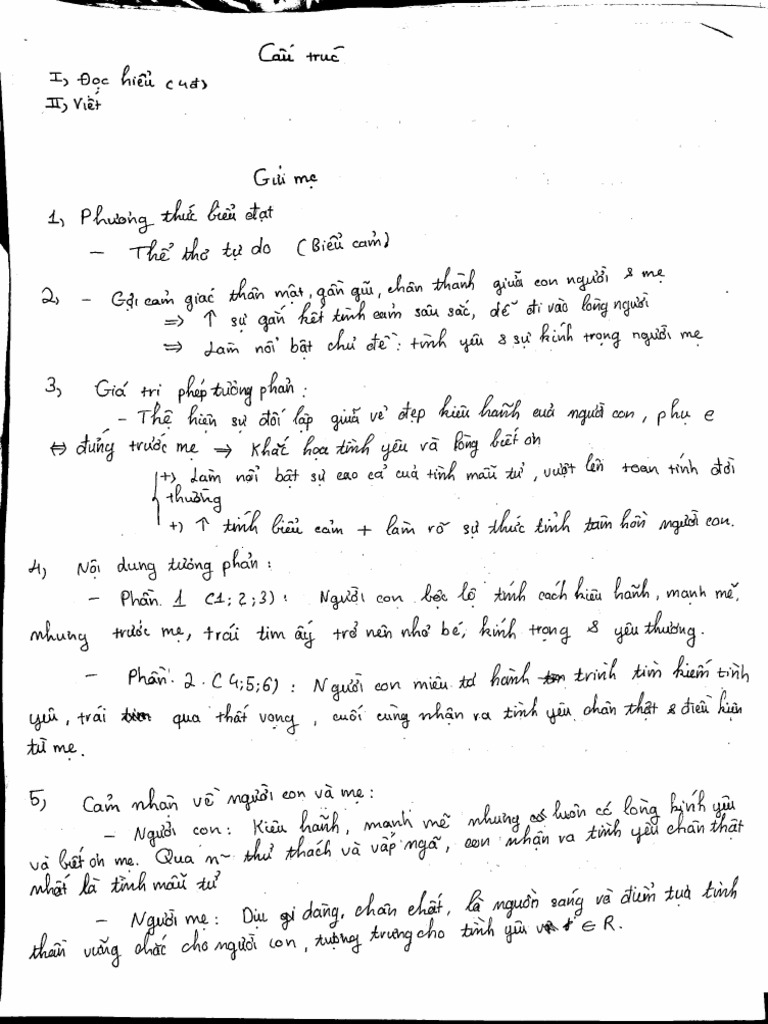 Cấu trúc
I, Đọc hiểu (4đ)
II, Viết
Gửi mẹ
1, Phương thức biểu đạt
- Thể thơ tự do (Biểu cảm)
2, - Gợi cảm giác thân mật, gần gũi, chân thành giữa con người & mẹ
=> ↑ sự gắn kết tình cảm sâu sắc, dễ đi vào lòng người
=> Làm nổi bật chủ đề: tình yêu & sự kính trọng người mẹ
3, Giá trị phép tương phản:
- Thể hiện sự đối lập giữa vẻ đẹp kiêu hãnh của người con, phụ e
<=> đứng trước mẹ => Khắc họa tình yêu và lòng biết ơn
+) Làm nổi bật sự cao cả của tình mẫu tử, vượt lên toan tính đời
thường
+) ↑ tính biểu cảm + làm rõ sự thức tỉnh tâm hồn người con.
4, Nội dung tương phản:
- Phần 1 (1; 2; 3): Người con bộc lộ tính cách kiêu hãnh, mạnh mẽ,
nhưng trước mẹ, trái tim ấy trở nên nhỏ bé, kính trọng & yêu thương.
- Phần 2. (4;5;6): Người con miêu tả hành trình tìm kiếm tình
yêu, trải qua thất vọng, cuối cùng nhận ra tình yêu chân thật & điều kiện
từ mẹ.
5, Cảm nhận về người con và mẹ:
- Người con: Kiêu hãnh, mạnh mẽ nhưng luôn có lòng kính yêu
và biết ơn mẹ. Qua n~ thử thách và vấp ngã, con nhận ra tình yêu chân thật
nhất là tình mẫu tử
- Người mẹ: Dịu dàng, chân chất, là nguồn sáng và điểm tựa tinh
thần vững chắc cho người con, tượng trưng cho tình yêu ∈ R.